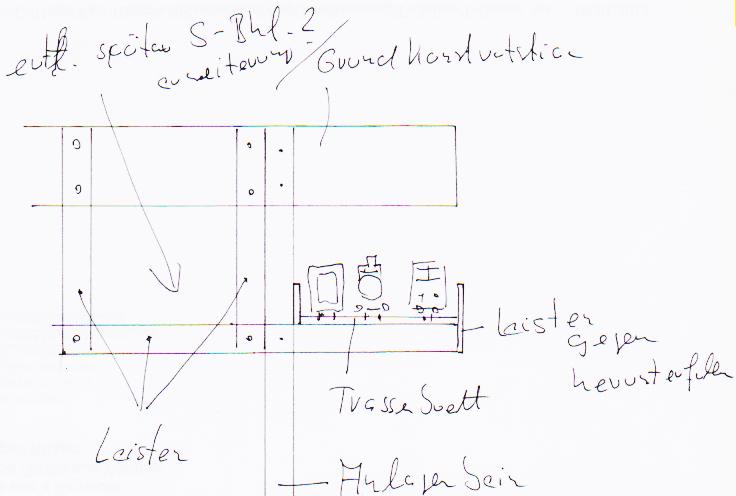 evtl. später S-Bhf.-?
erweiterung
Grundkonstruktion
Leisten
gegen
herunterfallen
Trassenbrett
Leisten
Anlagenbein